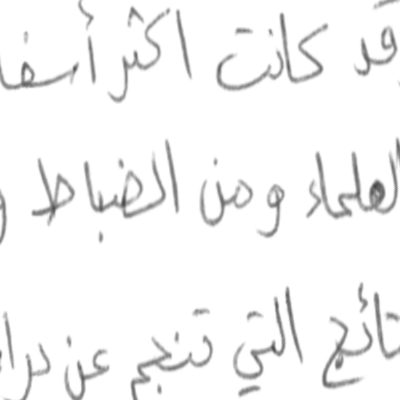 قد كانت اكثر أسفا
العلماء ومن الضباط و
تائج التي تنجم عن درا